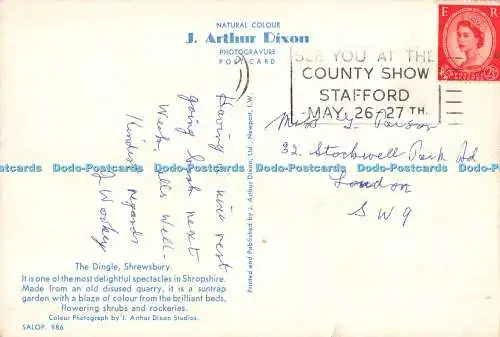 NATURAL COLOUR
J. Arthur Dixon
PHOTOGRAVURE
POSTCARD
E R
SEE YOU AT THE
COUNTY SHOW
STAFFORD
MAY 26-27 TH.
Having a nice rest
going back next
week.
Well-
Kindest regards
J Workey
Printed and Published by J. Arthur Dixon, Ltd., Newport, I.W.
Miss
32. Stockwell Park Rd
London
S W 9
Dodo-Postcards Dodo-Postcards Dodo-Postcards Dodo-Postcards Dodo-Postcards Dodo-Postcards
The Dingle, Shrewsbury.
It is one of the most delightful spectacles in Shropshire.
Made from an old disused quarry, it is a suntrap
garden with a blaze of colour from the brilliant beds,
flowering shrubs and rockeries.
Colour Photograph by J. Arthur Dixon Studios.
SALOP. 986